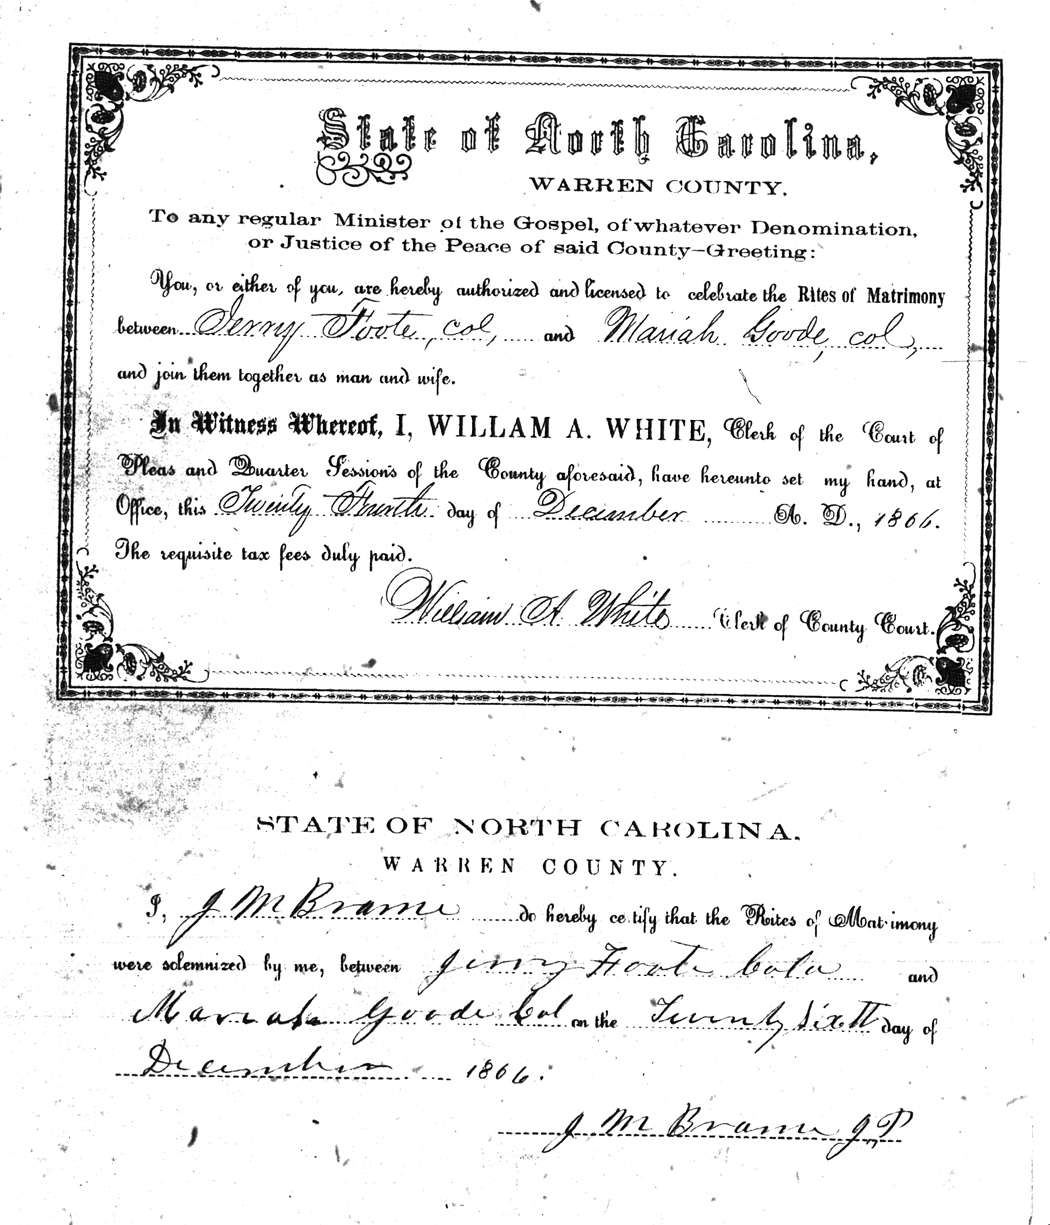 State of North Carolina,
WARREN COUNTY.
To any regular Minister of the Gospel, of whatever Denomination,
or Justice of the Peace of said County—Greeting:
You, or either of you, are hereby authorized and licensed to celebrate the Rites of Matrimony
between Jerry Foote, col, and Mariah Goode, col,
and join them together as man and wife.
In Witness Whereof, I, WILLAM A. WHITE, Clerk of the Court of
Pleas and Quarter Sessions of the County aforesaid, have hereunto set my hand, at
Office, this Twenty Fourth day of December A. D., 1866.
The requisite tax fees duly paid.
William A White Clerk of County Court.
STATE OF NORTH CAROLINA.
WARREN COUNTY.
I, J M Brame do hereby certify that the Rites of Matrimony
were solemnized by me, between Jerry Foote Cold and
Mariah Goode Col on the Twenty sixth day of
December 1866.
J M Brame J.P.